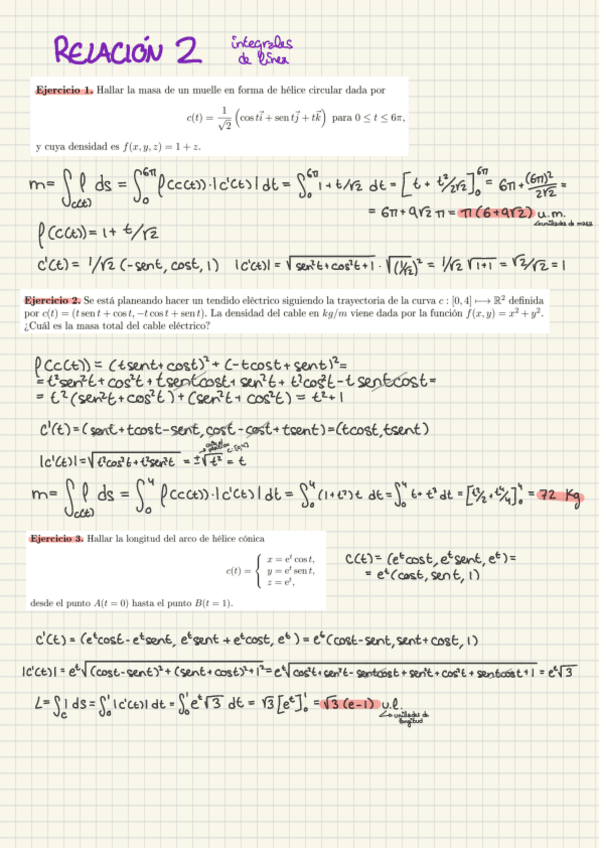 RELACIÓN 2 integrales de línea
Ejercicio 1. Hallar la masa de un muelle en forma de hélice circular dada por
c(t) = 1/√2 (cos t i⃗ + sen t j⃗ + t k⃗) para 0 ≤ t ≤ 6π,
y cuya densidad es f(x, y, z) = 1 + z.
m = ∫_c(t) f ds = ∫₀^6π f(c(t))·|c'(t)| dt = ∫₀^6π 1+t/√2 dt = [t + t²/2√2]₀^6π = 6π + (6π)²/2√2 =
= 6π+9√2 π = π(6+9√2) u.m.
unidades de masa
f(c(t)) = 1 + t/√2
c'(t) = 1/√2 (-sent, cost, 1) |c'(t)| = √sen²t+cos²t+1 · √(1/√2)² = 1/√2 √1+1 = √2/√2 = 1
Ejercicio 2. Se está planeando hacer un tendido eléctrico siguiendo la trayectoria de la curva c : [0, 4] ⟼ ℝ² definida
por c(t) = (t sen t + cos t, −t cos t + sen t). La densidad del cable en kg/m viene dada por la función f(x, y) = x² + y².
¿Cuál es la masa total del cable eléctrico?
f(c(t)) = (tsent+cost)² + (-tcost+sent)² =
= t²sen²t + cos²t + tsentcost + sen²t + t²cos²t - tsentcost =
= t²(sen²t+cos²t) + (sen²t + cos²t) = t²+1
c'(t) = (sent+tcost-sent, cost-cost+tsent) = (tcost, tsent)
|c'(t)| = √t²cos²t+t²sen²t = ±√t² = t
m = ∫_c(t) f ds = ∫₀⁴ f(c(t))·|c'(t)| dt = ∫₀⁴ (1+t²)t dt = ∫₀⁴ t+t³ dt = [t²/2 + t⁴/4]₀⁴ = 72 Kg
Ejercicio 3. Hallar la longitud del arco de hélice cónica
c(t) = { x = eᵗ cos t,
y = eᵗ sen t,
z = eᵗ,
c(t) = (eᵗcost, eᵗsent, eᵗ) =
= eᵗ(cost, sent, 1)
desde el punto A(t = 0) hasta el punto B(t = 1).
c'(t) = (eᵗcost-eᵗsent, eᵗsent+eᵗcost, eᵗ) = eᵗ(cost-sent, sent+cost, 1)
|c'(t)| = eᵗ√(cost-sent)²+(sent+cost)²+1² = eᵗ√cos²t+sen²t-sentcost+sen²t+cos²t+sentcost+1 = eᵗ√3
L = ∫_c 1 ds = ∫₀¹ |c'(t)| dt = ∫₀¹ eᵗ√3 dt = √3 [eᵗ]₀¹ = √3 (e-1) u.l.
unidades de longitud